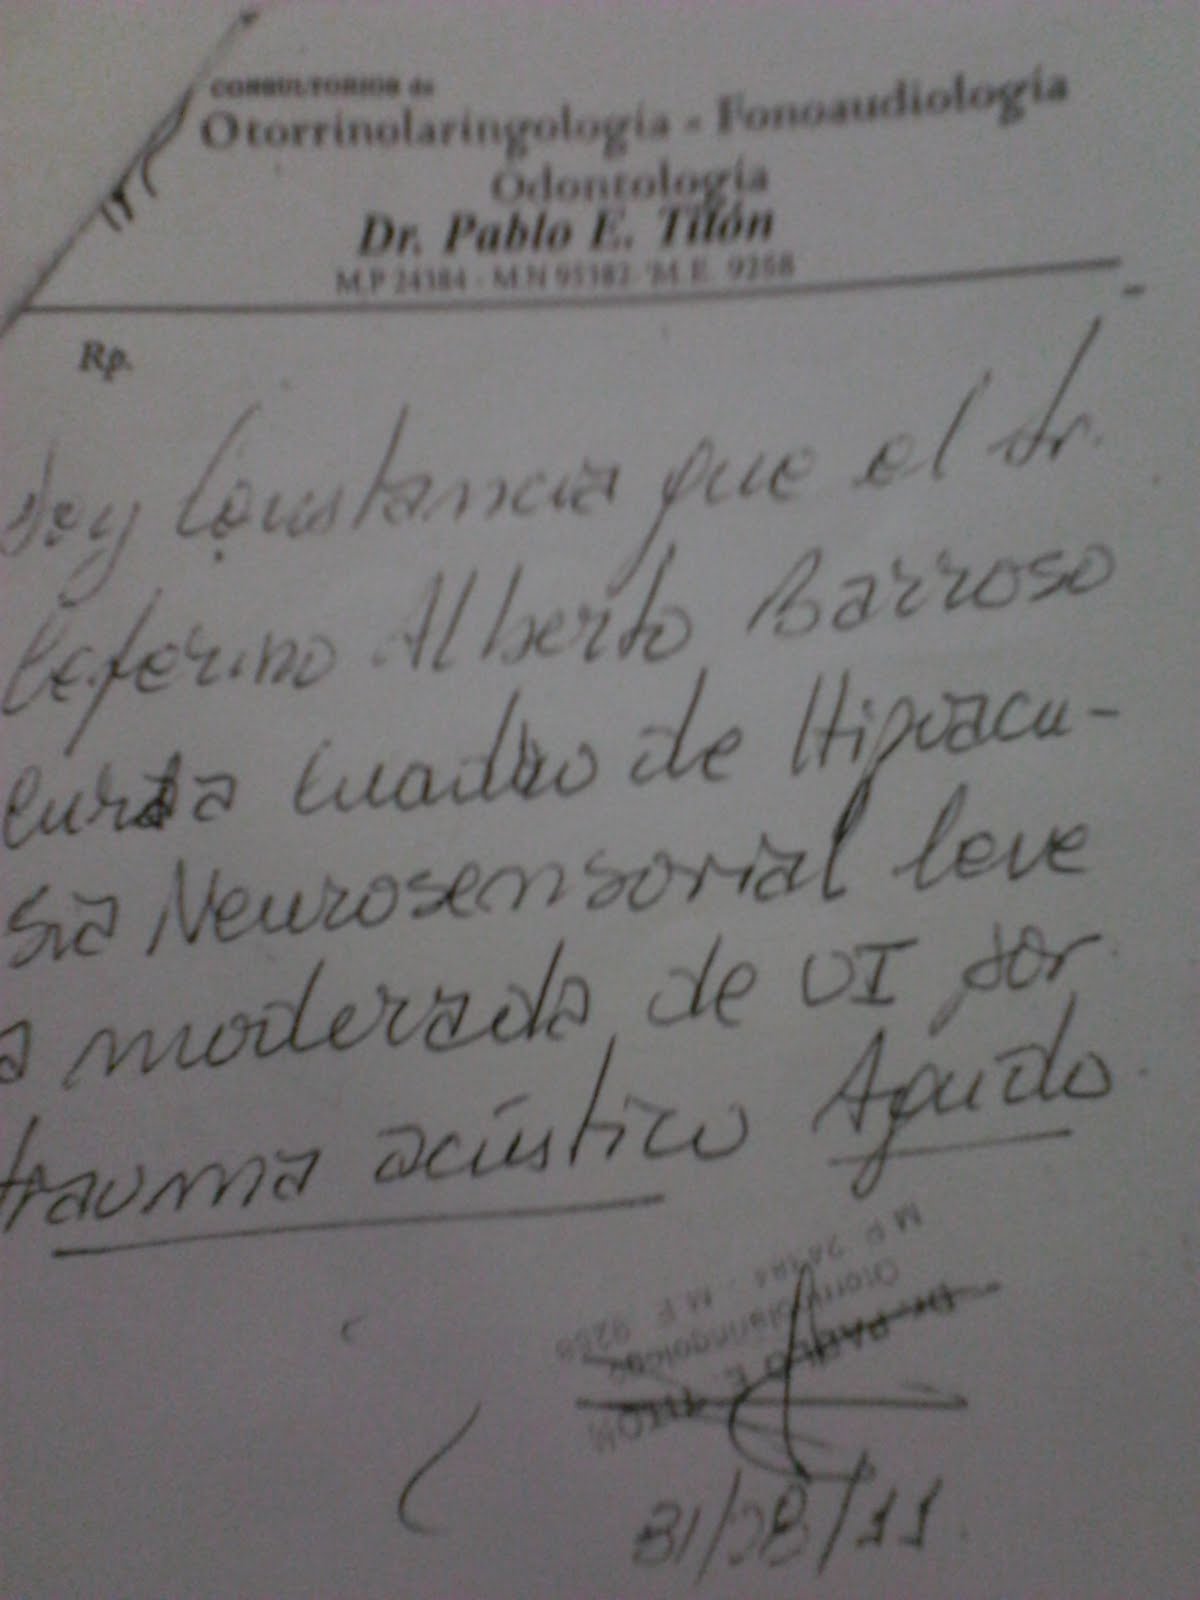 CONSULTORIOS de
Otorrinolaringología - Fonoaudiología
Odontología
Dr. Pablo E. Titón
M.P 24384 - M.N 95382 - M.E. 9258
Rp.
Doy Constancia que el Sr.
Ceferino Alberto Barroso
Cursa Cuadro de Hipoacu-
sia Neurosensorial leve
a moderada de OI por
trauma acústico Agudo
Dr. PABLO E. TITON
Otorrinolaringologo
M P 24384 - M E 9258
31/08/11